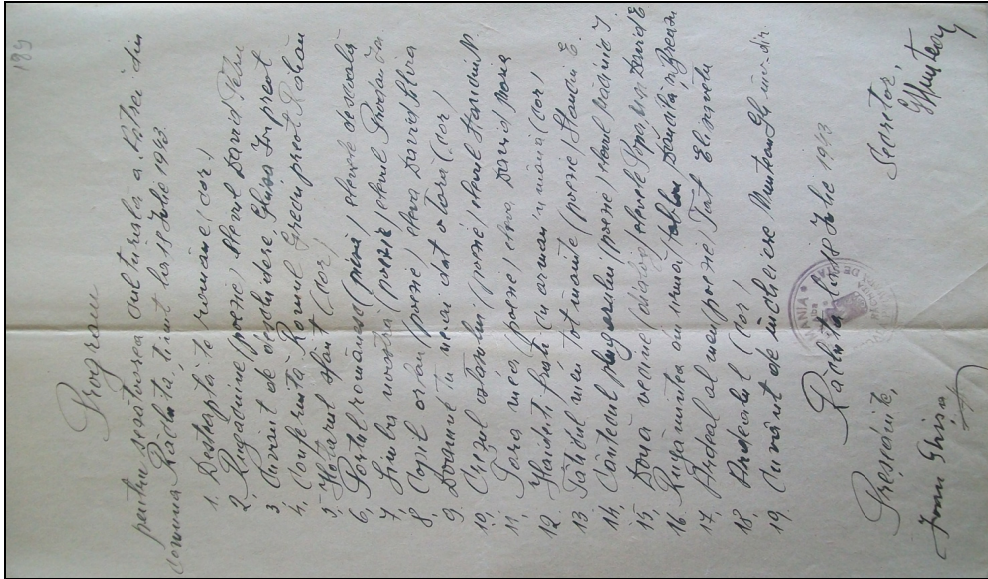 189
Program
pentru șezătoarea culturală a Astrei din
comuna Răchita, ținut la 18 Iulie 1943.
1. Deșteaptă-te române (cor)
2. Rugăciune (poezie) elevul David Petru
3. Cuvânt de deschidere, Ghișa I. preot
4. Conferința Romul Grecu preot Răhău
5. Hotarul sfânt (cor)
6. Portul românesc (piesă) elevele de școală
7. Limba noastră (poezie) elevul
8. Copil orfan (poezie) eleva David Silvia
9. Doamne tu ne-ai dat otara (cor)
10. Crezul ardealului (poezie) elevul Stanciu N
11. Țara mea (poezie) eleva David Mora
12. Haideți frați cu arma-n mână (cor)
13. Tăticul meu tot moare (poezie) Stanciu E.
14. Cântecul plugarului (poezie) elevul
15. Două vecine (dialog) elevele și David E
16. Rugămintea din urmă, Dăncilă
17. Ardeal al meu (poezie) Elisaveta
18. Ardealul (cor)
19. Cuvânt de închiere Munteanu Gh. înv. dir.
Răchita la 18 Iulie 1943
Președinte, Secretar,
Ioan Ghișa GMunteanu